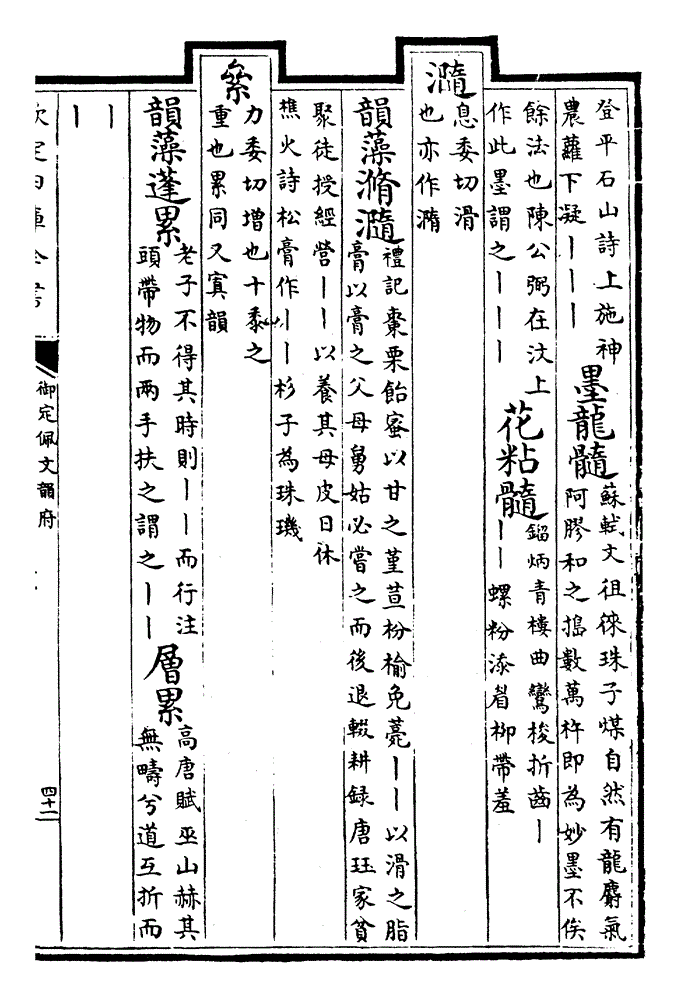 登平石山詩上施神
農蘿下凝丨丨丨
墨龍髓
蘇軾文徂徠珠子煤自然有龍麝氣
阿膠和之搗數萬杵即為妙墨不俟
餘法也陳公弼在汶上
作此墨謂之丨丨丨
花粘髓
鎦炳青樓曲鸞梭折齒丨
丨丨螺粉漆眉柳帶羞
瀡
息委切滑
也亦作滫
韻藻滫瀡
禮記棗栗飴蜜以甘之堇荁枌榆免薧丨丨以滑之脂
膏以膏之父母舅姑必嘗之而後退輟耕録唐珏家貧
聚徒授經營丨丨以養其母皮日休
樵火詩松膏作丨丨杉子為珠璣
絫
力委切增也十黍之
重也累同又寘韻
韻藻蓬累
老子不得其時則丨丨而行注
頭帶物而兩手扶之謂之丨丨
層累
高唐賦巫山赫其
無疇兮道互折而
丨
丨
欽定四庫全書
御定佩文韻府
四十二